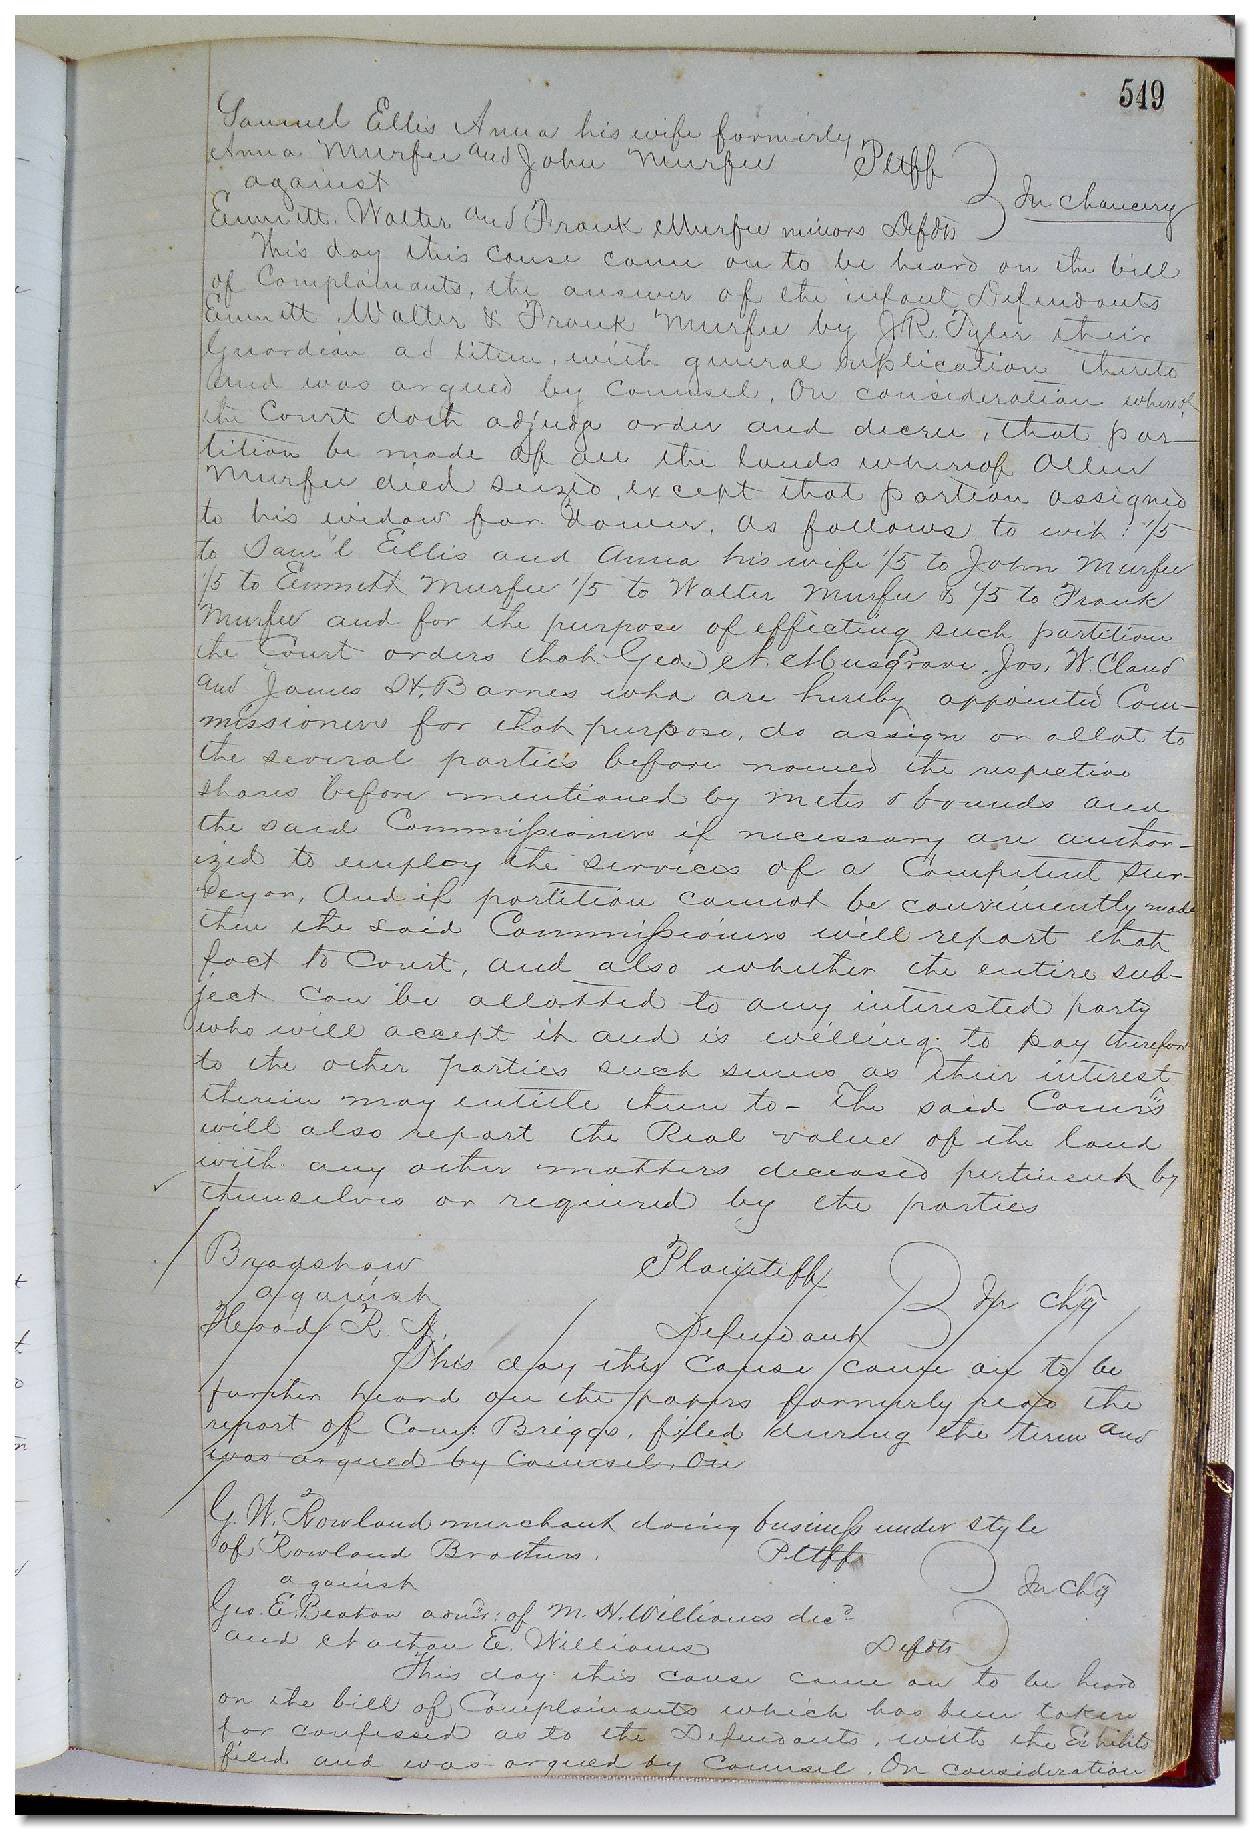 549
Samuel Ellis Anna his wife formerly
Anna Murfee and John Murfee Pltff
against
In chancery
Emmett Walter and Frank Murfee minors Defdts
This day this cause came on to be heard on the bill
of Complainants, the answer of the infant Defendants
Emmett Walter & Frank Murfee by J.R. Tyler their
Guardian ad litem, with general replication thereto
and was argued by Counsel, On consideration whereof
the Court doth adjudge order and decree, that par-
tition be made of all the lands whereof Allen
Murfee died seized, except that portion assigned
to his widow for Dower, as follows to wit: 1/5
to Sam'l Ellis and Anna his wife 1/5 to John Murfee
1/5 to Emmett Murfee 1/5 to Walter Murfee & 1/5 to Frank
Murfee and for the purpose of effecting such partition
the Court orders that Geo. N. Musgrave Jos. W. Claud
and James H. Barnes who are hereby appointed Com-
missioners for that purpose, do assign or allot to
the several parties before named the respective
shares before mentioned by metes & bounds and
the said Commissioners if necessary are author-
ized to employ the services of a Competent Sur-
veyor, And if partition cannot be conveniently made
then the said Commissioners will report that
fact to Court, and also whether the entire sub-
ject can be allotted to any interested party
who will accept it and is willing to pay therefor
to the other parties such sums as their interest
therein may entitle them to - The said Comrs
will also report the Real value of the land
with any other matters deceased pertinent by
themselves or required by the parties
Bradshaw Plaintiff
against
In Chy
Hood R. A. Defendant
This day this cause came on to be
further heard on the papers formerly read the
report of Com: Briggs, filed during the term and
was argued by Counsel. On
G. W. Rowland merchant doing business under style
of Rowland Brothers. Pltff
against
In Chy
Geo. E. Beaton admr: of M. H. Williams decd
and Nathan E. Williams Defdts
This day this cause came on to be heard
on the bill of Complainants which has been taken
for confessed as to the Defendants, with the Exhibits
filed and was argued by Counsel. On consideration